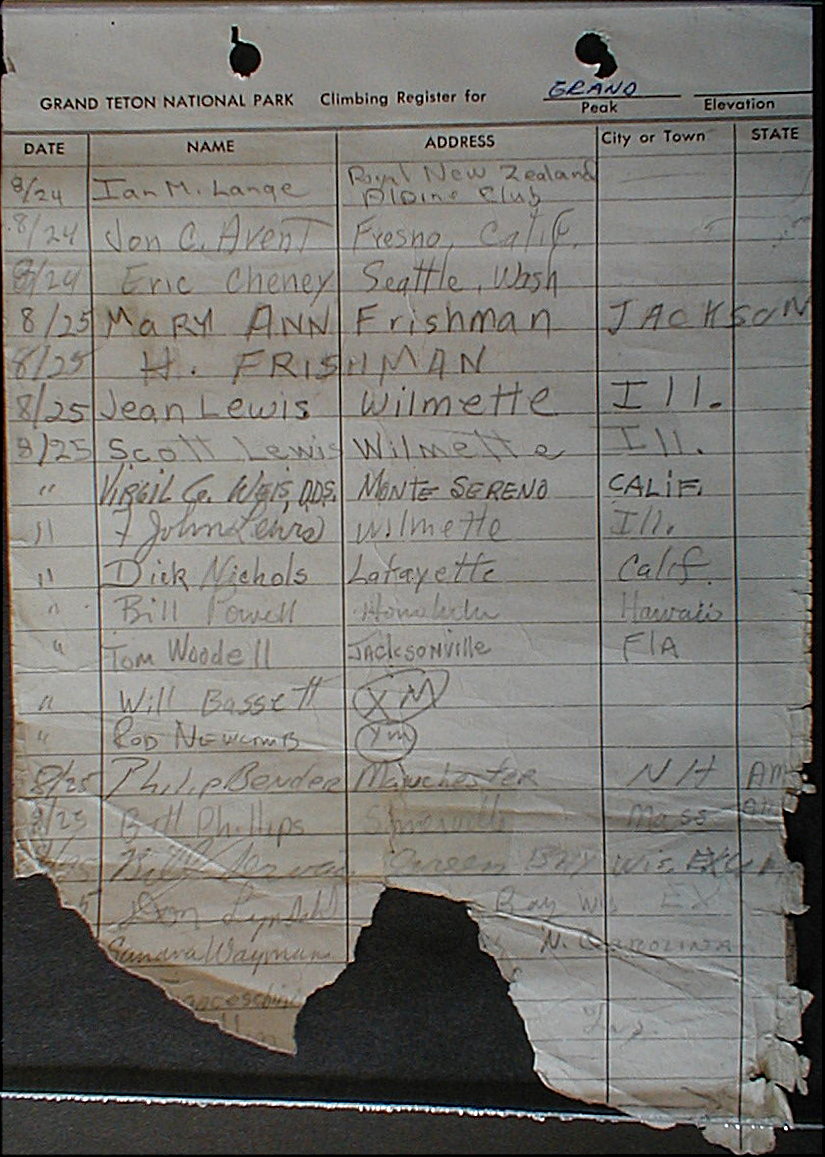 GRAND
GRAND TETON NATIONAL PARK Climbing Register for
Peak Elevation
DATE NAME ADDRESS City or Town STATE
8/24 Ian M. Lange Royal New Zealand Alpine Club
8/24 Jon C. Avent Fresno, Calif.
8/24 Eric Cheney Seattle, Wash
8/25 MARY ANN Frishman JACKSON
8/25 H. FRISHMAN
8/25 Jean Lewis Wilmette Ill.
8/25 Scott Lewis Wilmette Ill.
" VIRGIL G. WEIS, DDS. MONTE SERENO CALIF.
" John Lewis Wilmette Ill.
" Dick Nichols Lafayette Calif.
" Bill Powell Honolulu Hawaii
" Tom Woodell JACKSONVILLE FLA
" Will Bassett XM
" ROD NEWCOMB YM
8/25 Philip Bender Manchester NH AM
8/25 Phillips Somerville Mass
Green BAY Wis
5 Don Bay Wis EX
Sandra Wayman N. CAROLINA